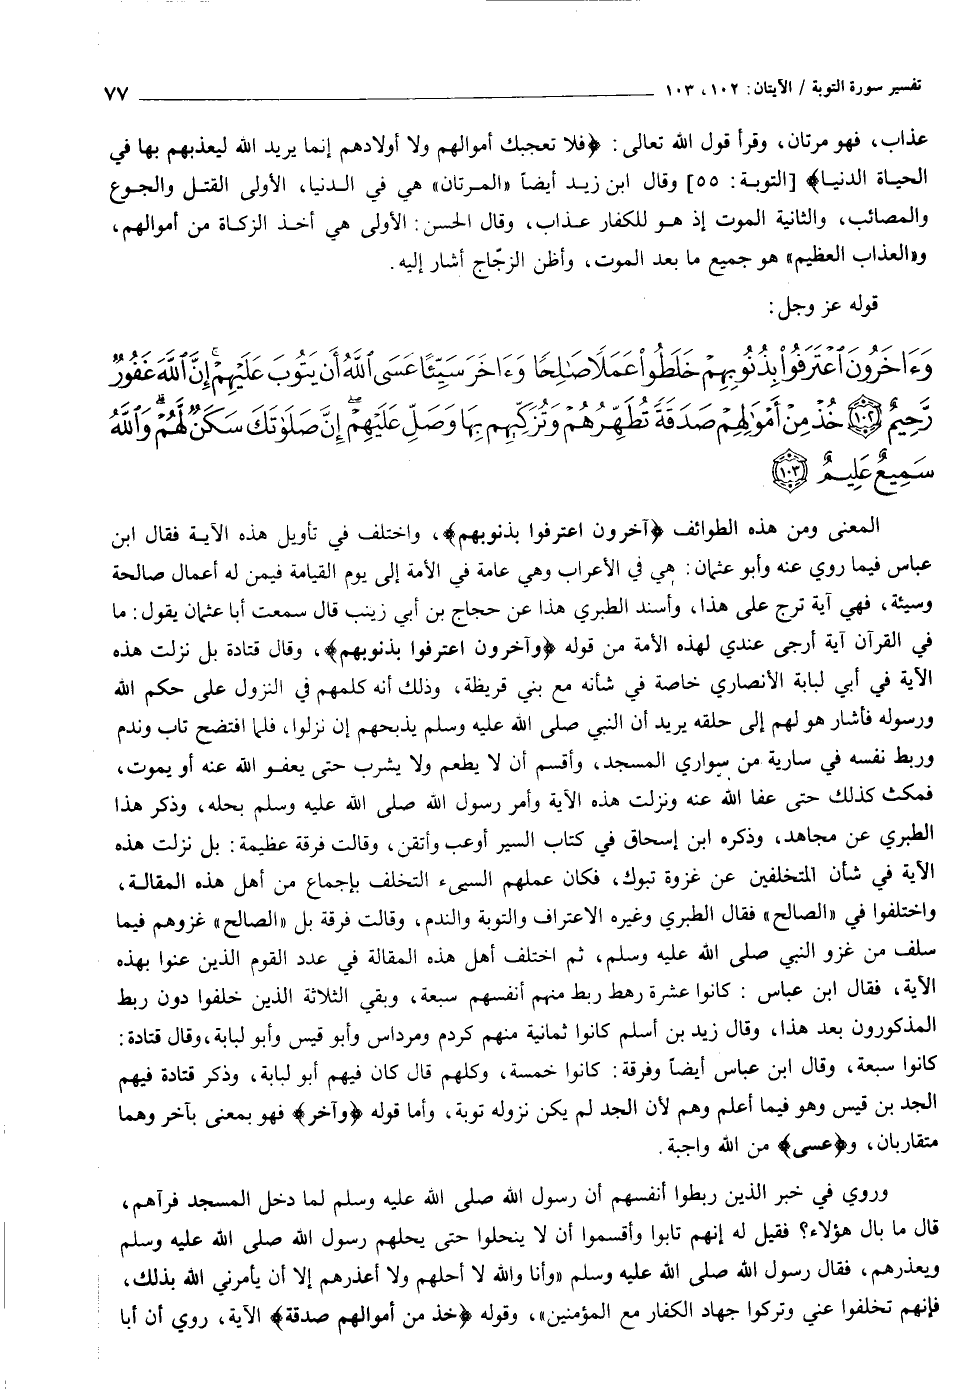 تفسير سورة التوبة / الآيتان: ١٠٢، ١٠٣ ــــــــــــــــــــ ٧٧
عذاب، فهو مرتان، وقرأ قول الله تعالى: ﴿فلا تعجبك أموالهم ولا أولادهم إنما يريد الله ليعذبهم بها في
الحياة الدنيا﴾ [التوبة: ٥٥] وقال ابن زيد أيضاً «المرتان» هي في الدنيا، الأولى القتل والجوع
والمصائب، والثانية الموت إذ هو للكفار عذاب، وقال الحسن: الأولى هي أخذ الزكاة من أموالهم،
و«العذاب العظيم» هو جميع ما بعد الموت، وأظن الزجّاج أشار إليه.
قوله عز وجل:
وَءَاخَرُونَ ٱعْتَرَفُوا۟ بِذُنُوبِهِمْ خَلَطُوا۟ عَمَلًا صَٰلِحًا وَءَاخَرَ سَيِّئًا عَسَى ٱللَّهُ أَن يَتُوبَ عَلَيْهِمْ ۚ إِنَّ ٱللَّهَ غَفُورٌ
رَّحِيمٌ ﴿١٠٢﴾ خُذْ مِنْ أَمْوَٰلِهِمْ صَدَقَةً تُطَهِّرُهُمْ وَتُزَكِّيهِم بِهَا وَصَلِّ عَلَيْهِمْ ۖ إِنَّ صَلَوٰتَكَ سَكَنٌ لَّهُمْ ۗ وَٱللَّهُ
سَمِيعٌ عَلِيمٌ ﴿١٠٣﴾
المعنى ومن هذه الطوائف ﴿آخرون اعترفوا بذنوبهم﴾، واختلف في تأويل هذه الآية فقال ابن
عباس فيما روي عنه وأبو عثمان: هي في الأعراب وهي عامة في الأمة إلى يوم القيامة فيمن له أعمال صالحة
وسيئة، فهي آية ترج على هذا، وأسند الطبري هذا عن حجاج بن أبي زينب قال سمعت أبا عثمان يقول: ما
في القرآن آية أرجى عندي لهذه الأمة من قوله ﴿وآخرون اعترفوا بذنوبهم﴾، وقال قتادة بل نزلت هذه
الآية في أبي لبابة الأنصاري خاصة في شأنه مع بني قريظة، وذلك أنه كلمهم في النزول على حكم الله
ورسوله فأشار هو لهم إلى حلقه يريد أن النبي صلى الله عليه وسلم يذبحهم إن نزلوا، فلما افتضح تاب وندم
وربط نفسه في سارية من سواري المسجد، وأقسم أن لا يطعم ولا يشرب حتى يعفو الله عنه أو يموت،
فمكث كذلك حتى عفا الله عنه ونزلت هذه الآية وأمر رسول الله صلى الله عليه وسلم بحله، وذكر هذا
الطبري عن مجاهد، وذكره ابن إسحاق في كتاب السير أوعب وأتقن، وقالت فرقة عظيمة: بل نزلت هذه
الآية في شأن المتخلفين عن غزوة تبوك، فكان عملهم السيىء التخلف بإجماع من أهل هذه المقالة،
واختلفوا في «الصالح» فقال الطبري وغيره الاعتراف والتوبة والندم، وقالت فرقة بل «الصالح» غزوهم فيما
سلف من غزو النبي صلى الله عليه وسلم، ثم اختلف أهل هذه المقالة في عدد القوم الذين عنوا بهذه
الآية، فقال ابن عباس : كانوا عشرة رهط ربط منهم أنفسهم سبعة، وبقي الثلاثة الذين خلفوا دون ربط
المذكورون بعد هذا، وقال زيد بن أسلم كانوا ثمانية منهم كردم ومرداس وأبو قيس وأبو لبابة، وقال قتادة:
كانوا سبعة، وقال ابن عباس أيضاً وفرقة: كانوا خمسة، وكلهم قال كان فيهم أبو لبابة، وذكر قتادة فيهم
الجد بن قيس وهو فيما أعلم وهم لأن الجد لم يكن نزوله توبة، وأما قوله ﴿وآخر﴾ فهو بمعنى بآخر وهما
متقاربان، و﴿عسى﴾ من الله واجبة.
وروي في خبر الذين ربطوا أنفسهم أن رسول الله صلى الله عليه وسلم لما دخل المسجد فرآهم،
قال ما بال هؤلاء؟ فقيل له إنهم تابوا وأقسموا أن لا ينحلوا حتى يحلهم رسول الله صلى الله عليه وسلم
ويعذرهم، فقال رسول الله صلى الله عليه وسلم «وأنا والله لا أحلهم ولا أعذرهم إلا أن يأمرني الله بذلك،
فإنهم تخلفوا عني وتركوا جهاد الكفار مع المؤمنين»، وقوله ﴿خذ من أموالهم صدقة﴾ الآية، روي أن أبا